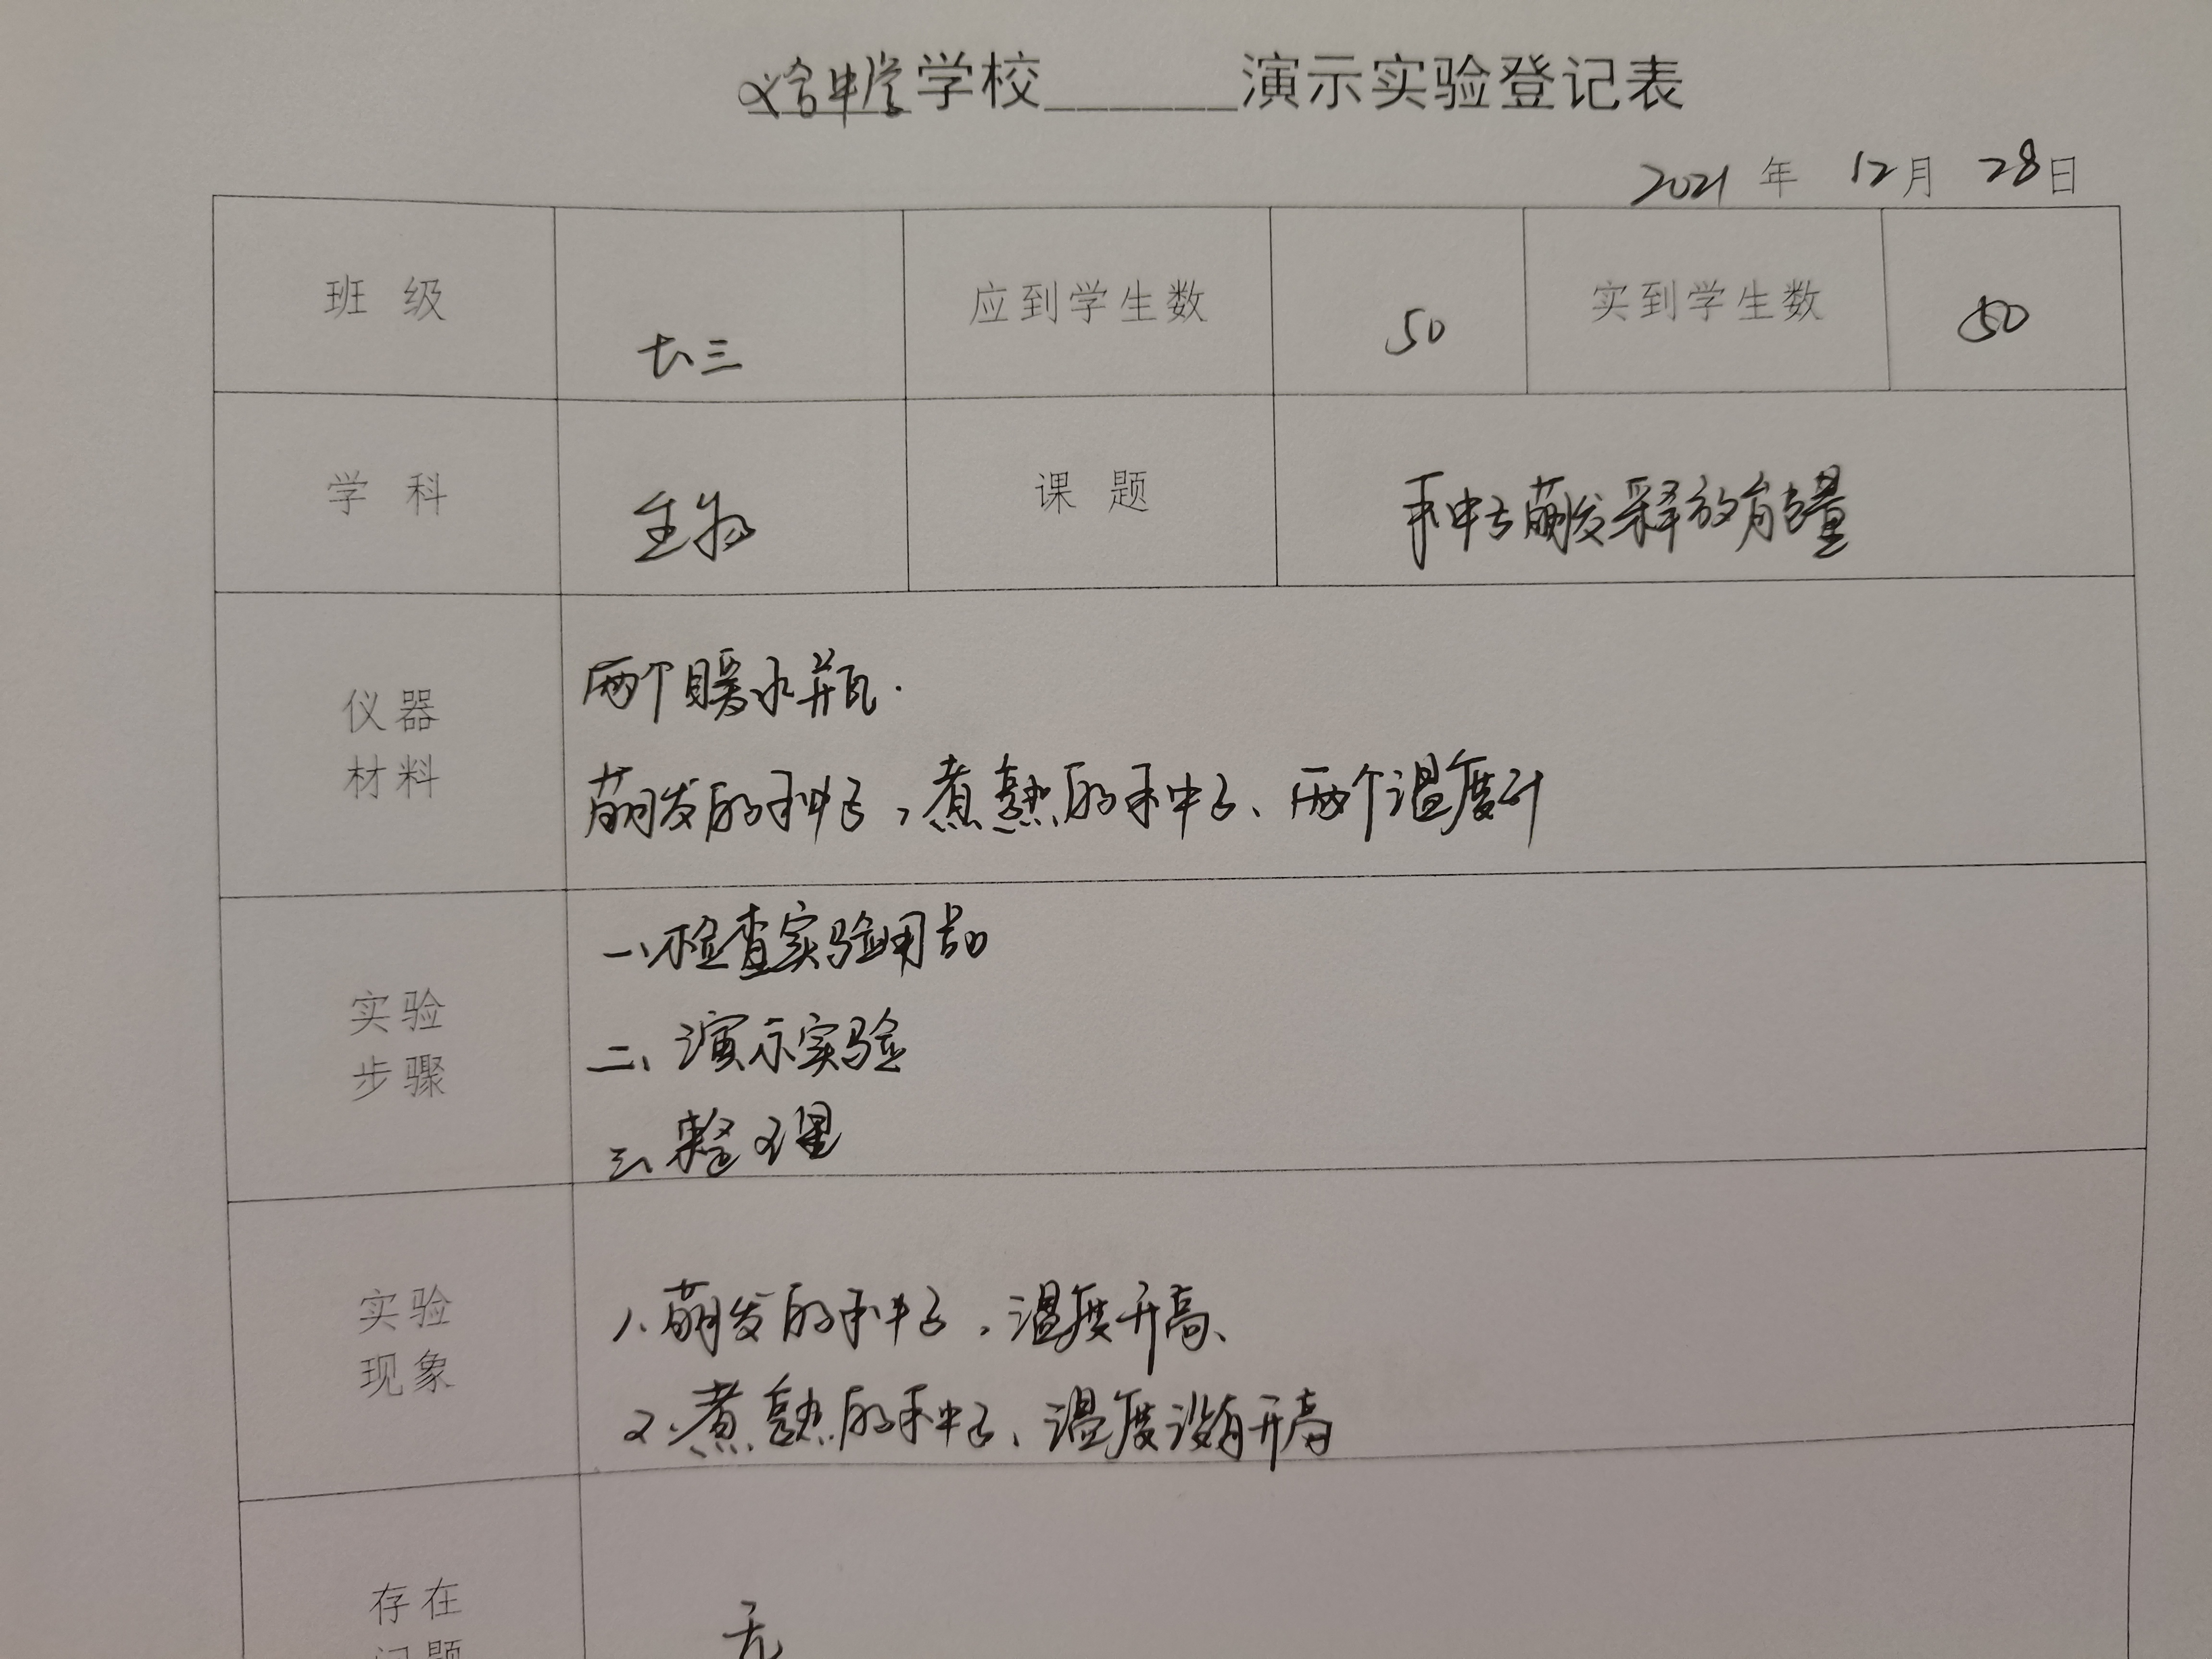 义合中学学校______演示实验登记表
2021 年 12月 28日
班 级 七、三 应到学生数 50 实到学生数 50
学 科 生物 课 题 种子萌发释放能量
仪器
材料
两个暖水瓶.
萌发的种子,煮熟的种子、两个温度计
实验
步骤
一、检查实验用品
二、演示实验
三、整理
实验
现象
1、萌发的种子,温度升高、
2、煮熟的种子、温度没有升高
存在
问题
无